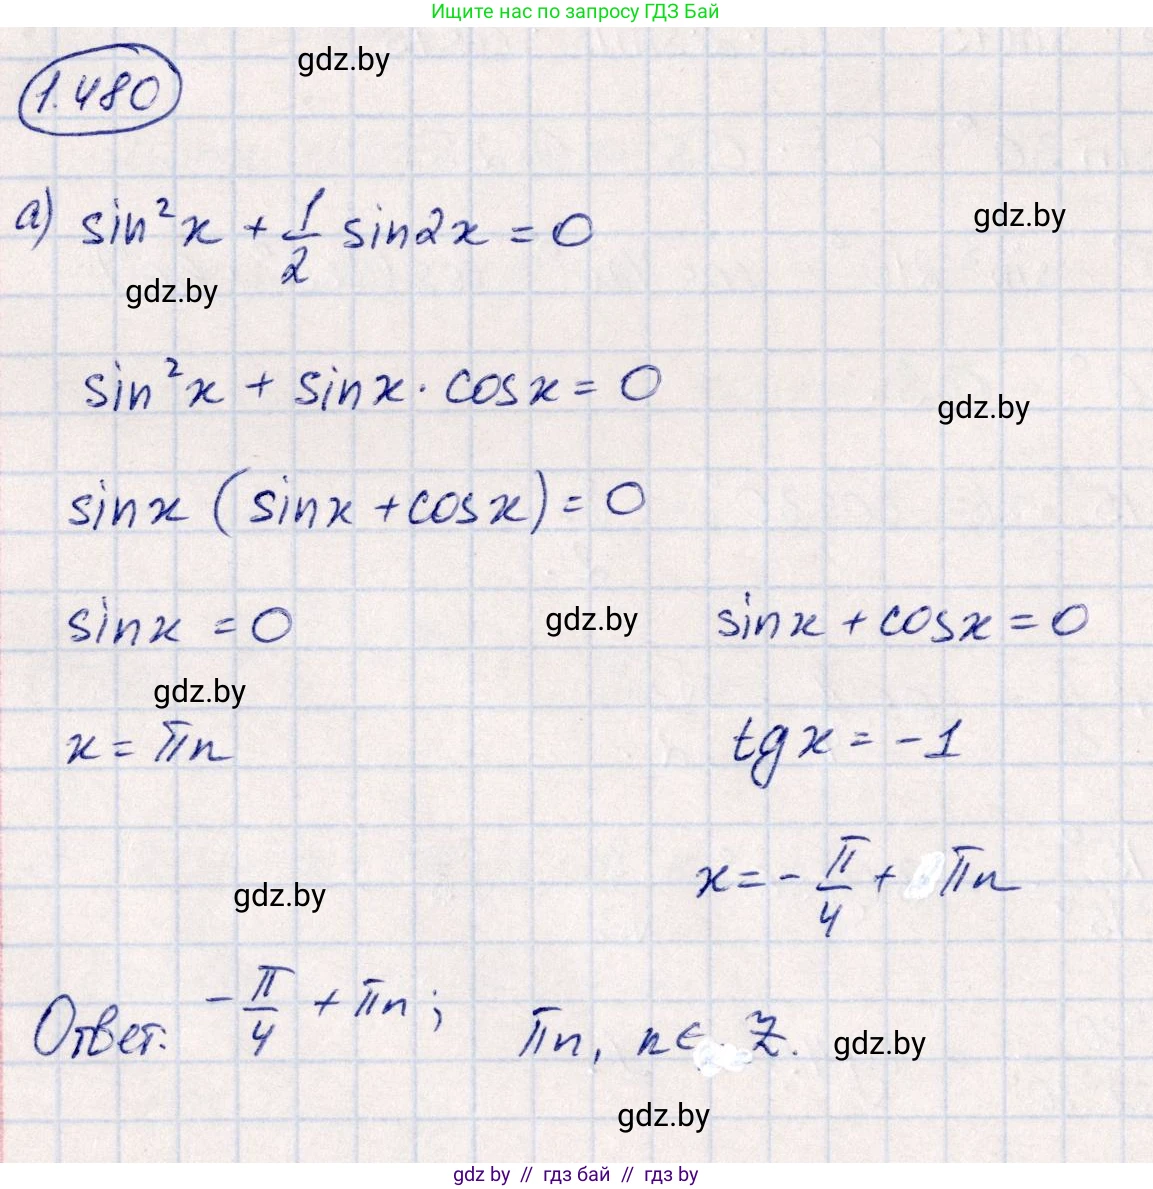 Ищите нас по запросу ГДЗ Бай
gdz.by
1.480
а) sin²x + 1/2 sin2x = 0
gdz.by
gdz.by
sin²x + sinx · cosx = 0
gdz.by
sinx (sinx + cosx) = 0
sinx = 0 gdz.by sinx + cosx = 0
gdz.by
x = πn tgx = -1
gdz.by x = -π/4 + πn
Ответ: -π/4 + πn; πn, n ∈ Z. gdz.by
gdz.by
gdz by // гдз бай // гдз by